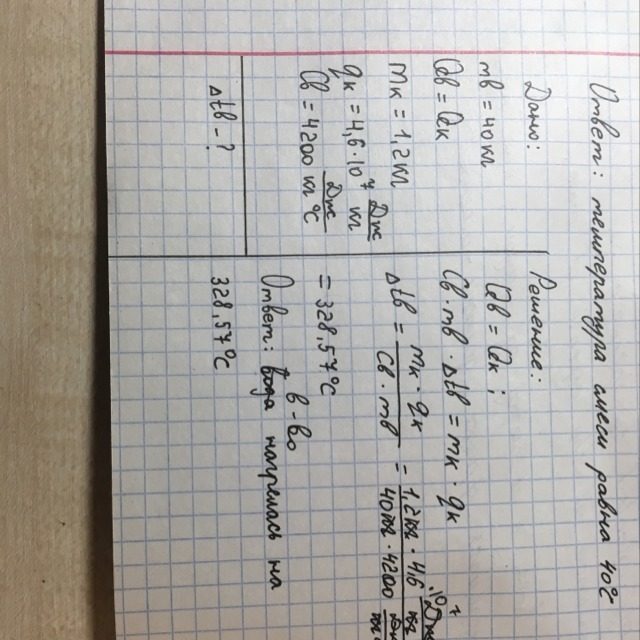 Ответ: температура смеси равна 40°C
Дано:
mв = 40 кг
Qв = Qк
mк = 1,2 кг
qк = 4,6·10⁷ Дж/кг
Cв = 4200 Дж/кг °C
Δtв - ?
Решение:
Qв = Qк;
Cв · mв · Δtв = mк · qк
Δtв = mк · qк / Cв · mв = 1,2 кг · 4,6 · 10⁷ Дж/кг / 40 кг · 4200 Дж/кг
= 328,57°C
в-во
Ответ: вода нагрелась на
328,57°C